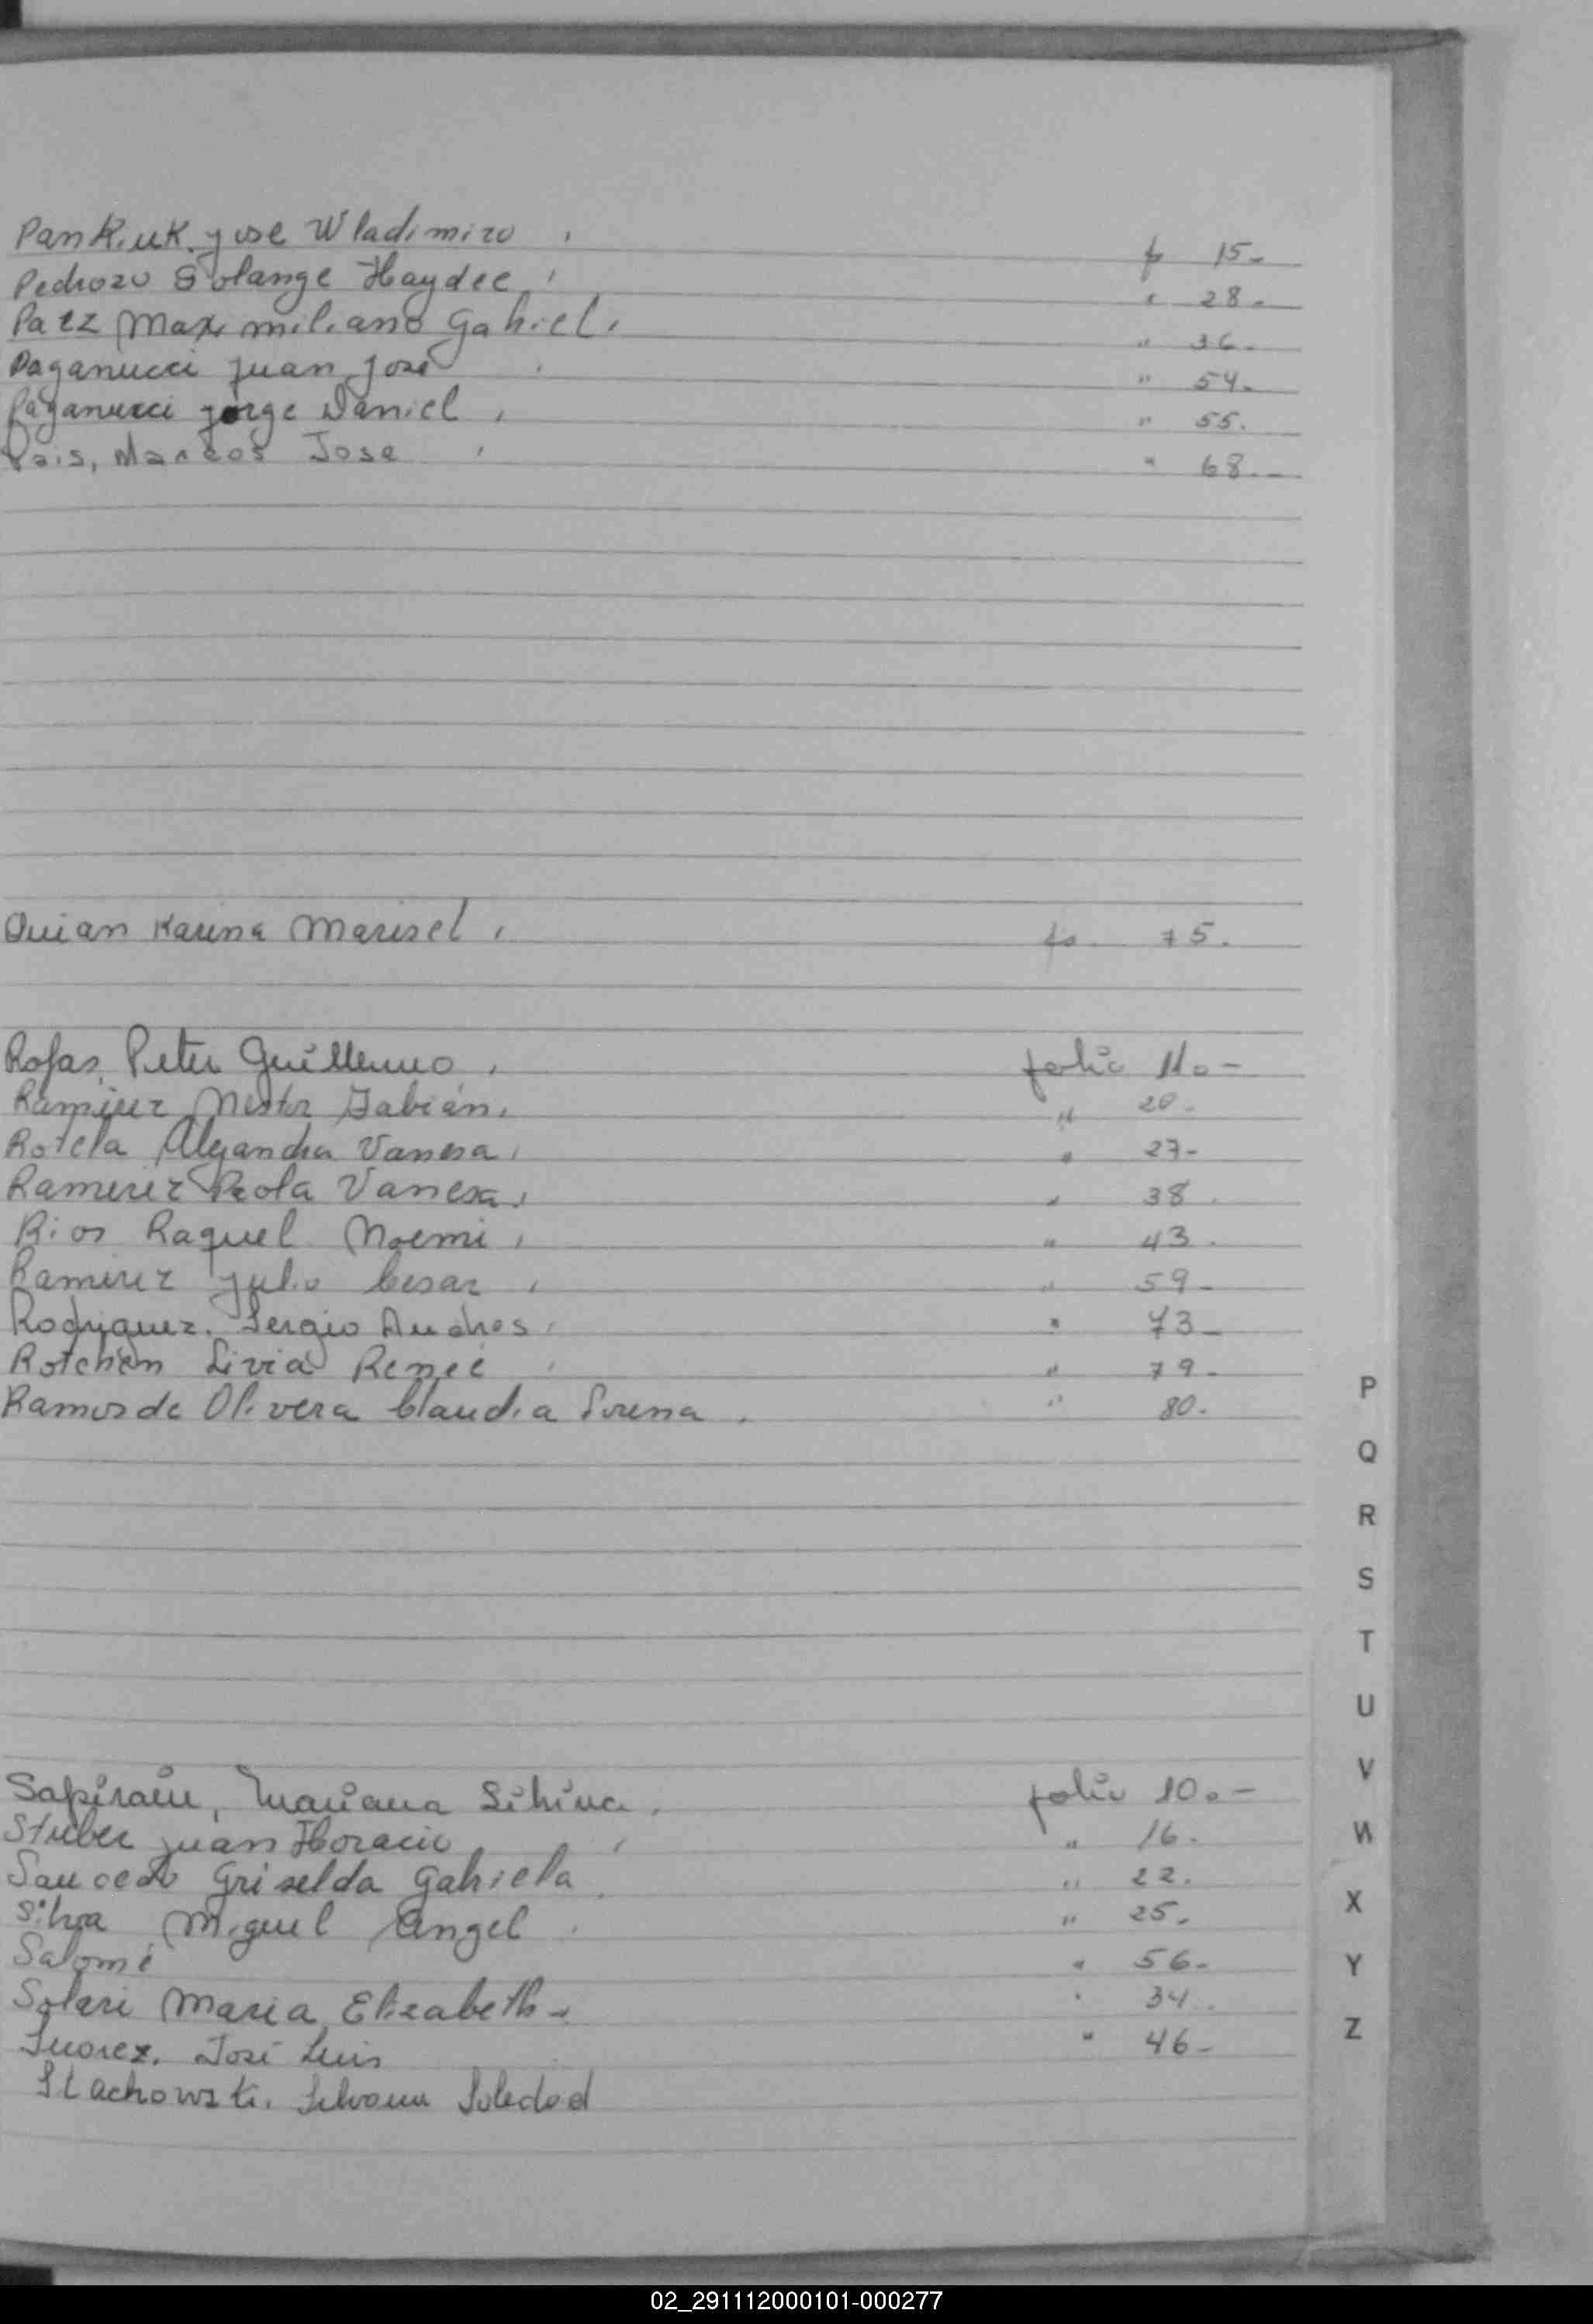 PanKiuK. jose Wladimiro , fo 15-
Pedrozo Solange Haydee , " 28-
Paez Maximiliano Gabriel , " 36-
Paganucci Juan José , " 54-
Paganucci jorge Daniel , " 55.
Pais, Marcos Jose , " 68.-
Quian Karina Marisel , fo. 75.
Rojas, Peter Guillermo , folio 11.-
Ramirez Nestor Fabián , " 20-
Rotela Alejandra Vanesa , " 27-
Ramirez Paola Vanesa , " 38.
Rios Raquel Noemi , " 43.
Ramirez Julio Cesar , " 59-
Rodriguez. Sergio Andres , " 73-
Rotchen Livia Reneé , " 79-
Ramos de Olivera Claudia Lorena . " 80.
P
Q
R
S
T
U
V
W
X
Y
Z
Mariana Silvina , folio 10.-
Stuber juan Horacio , " 16.
Saucedo Griselda Gabriela . " 22.
Silva Miguel Angel . " 25.
Salomé " 56-
Solari Maria Elizabeth - " 34.
Suarez. José Luis " 46-
Stachowski. Silvana Soledad
02_291112000101-000277